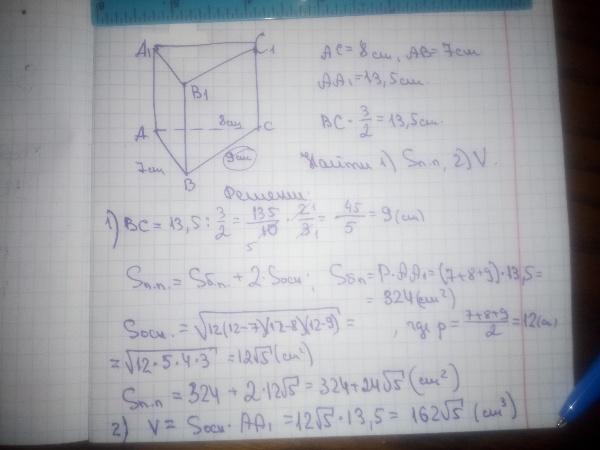 A₁ C1
B1
A 8см C
7см 9см
B
AC = 8см, AB = 7см
AA₁ = 13,5см
BC · 3/2 = 13,5см.
Найти 1) Sп.п, 2) V.
Решение:
1) BC = 13,5 : 3/2 = 135/10 · 2/3 = 45/5 = 9(см)
Sп.п. = Sбп + 2·Sосн; Sбп = P·AA₁ = (7+8+9)·13,5 =
= 324(см²)
Sосн. = √12(12-7)(12-8)(12-9) = , где p = 7+8+9/2 = 12(см)
= √12·5·4·3 = 12√5 (см²)
Sп.п = 324 + 2·12√5 = 324 + 24√5 (см²)
2) V = Sосн · AA₁ = 12√5 · 13,5 = 162√5 (см³)